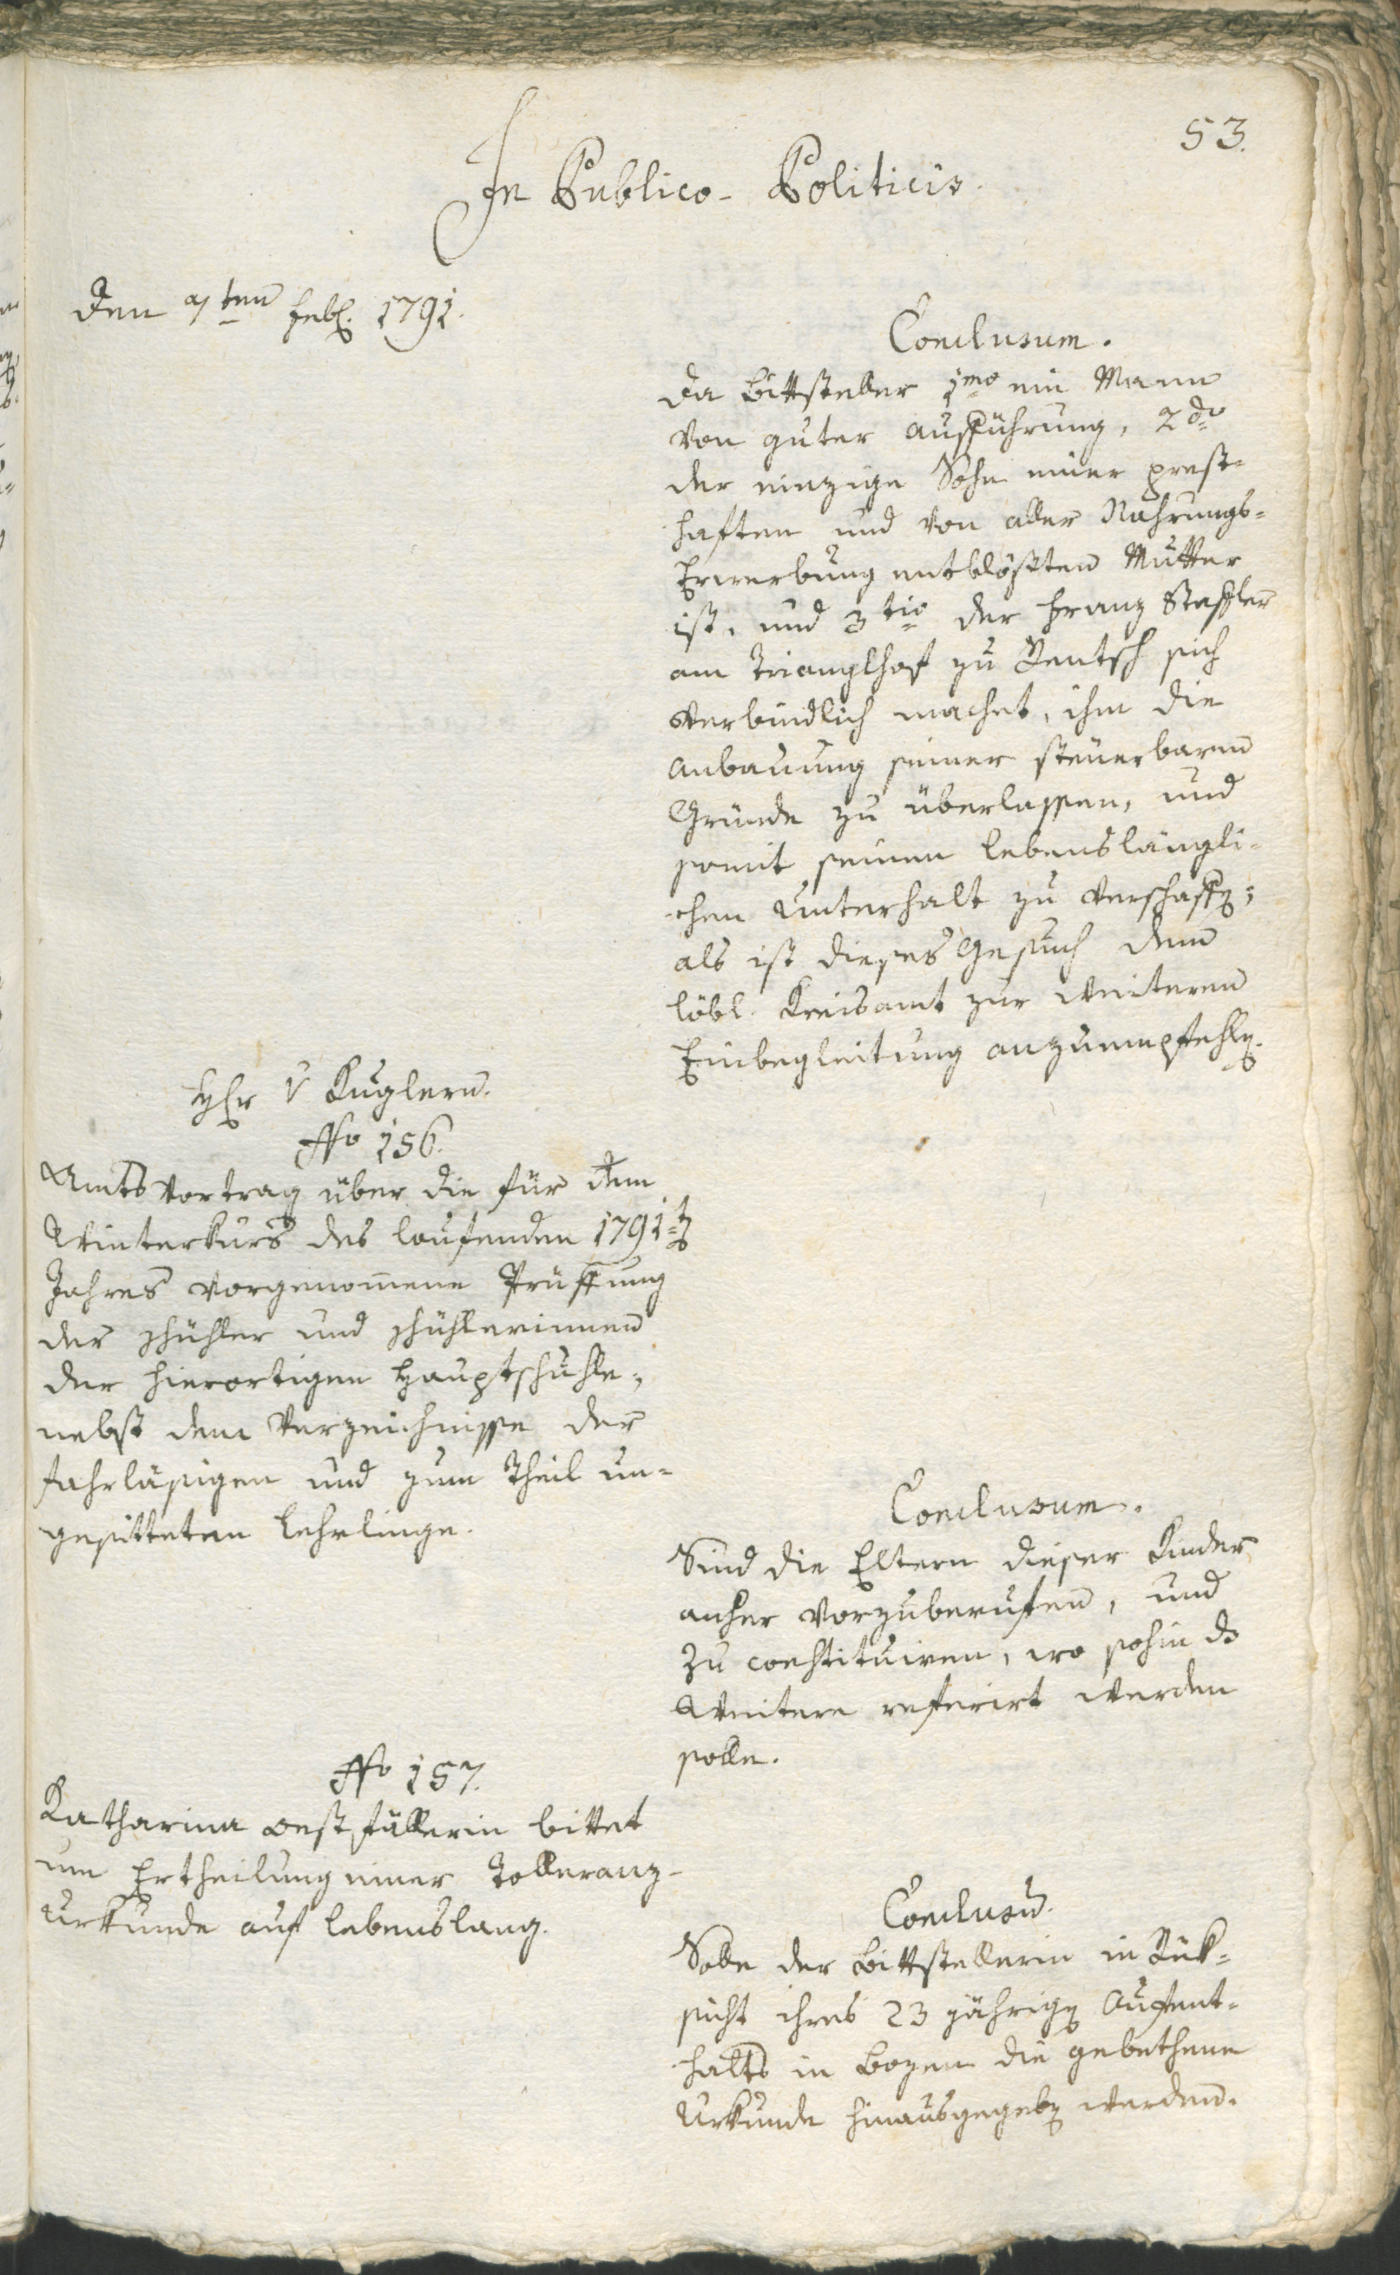 53.
In Publico-Politicis.
den 7ten Febr. 1791.
Conclusum.
Da Bittsteller 1mo ein Mann
von guter Aufführung, 2do
der einzige Sohn einer prest-
haften und von aller Nahrungs-
Erwerbung entblößten Mutter
ist, und 3tio der Franz Staffler
am Trianglhof zu Rentsch sich
verbindlich machet, ihm die
Anbauung seiner steuerbaren
Gründe zu überlassen, und
somit seinen lebenslängli-
chen Unterhalt zu verschaffen;
als ist dieses Gesuch dem
löbl. Kreisamt zur weiteren
Einbegleitung anzuempfehlen.
Herr v Kuglern.
No 156.
Amtsvortrag über die für dem
Winterkurs des laufenden 1791t
Jahres vorgenomene Prüffung
der Schühler und Schühlerinnen
der hierortigen Hauptschuhle,
nebst dem Verzeichnisse der
fahrläsigen und zum Theil un-
gesitteten Lehrlinge.
Conclusum.
Sind die Eltern dieser Kinder
anher vorzuberufen, und
zu constituiren, wo sohin ds
Weitere referirt werden
solle.
No 157.
Katharina Oestfällerin bittet
um Ertheilung einer Tolleranz-
Urkunde auf lebenslang.
Conclusum.
Solle der Bittstellerin in Rük-
sicht ihres 23 jährigen Aufent-
halts in Bozen die gebethene
Urkunde hinausgegeben werden.